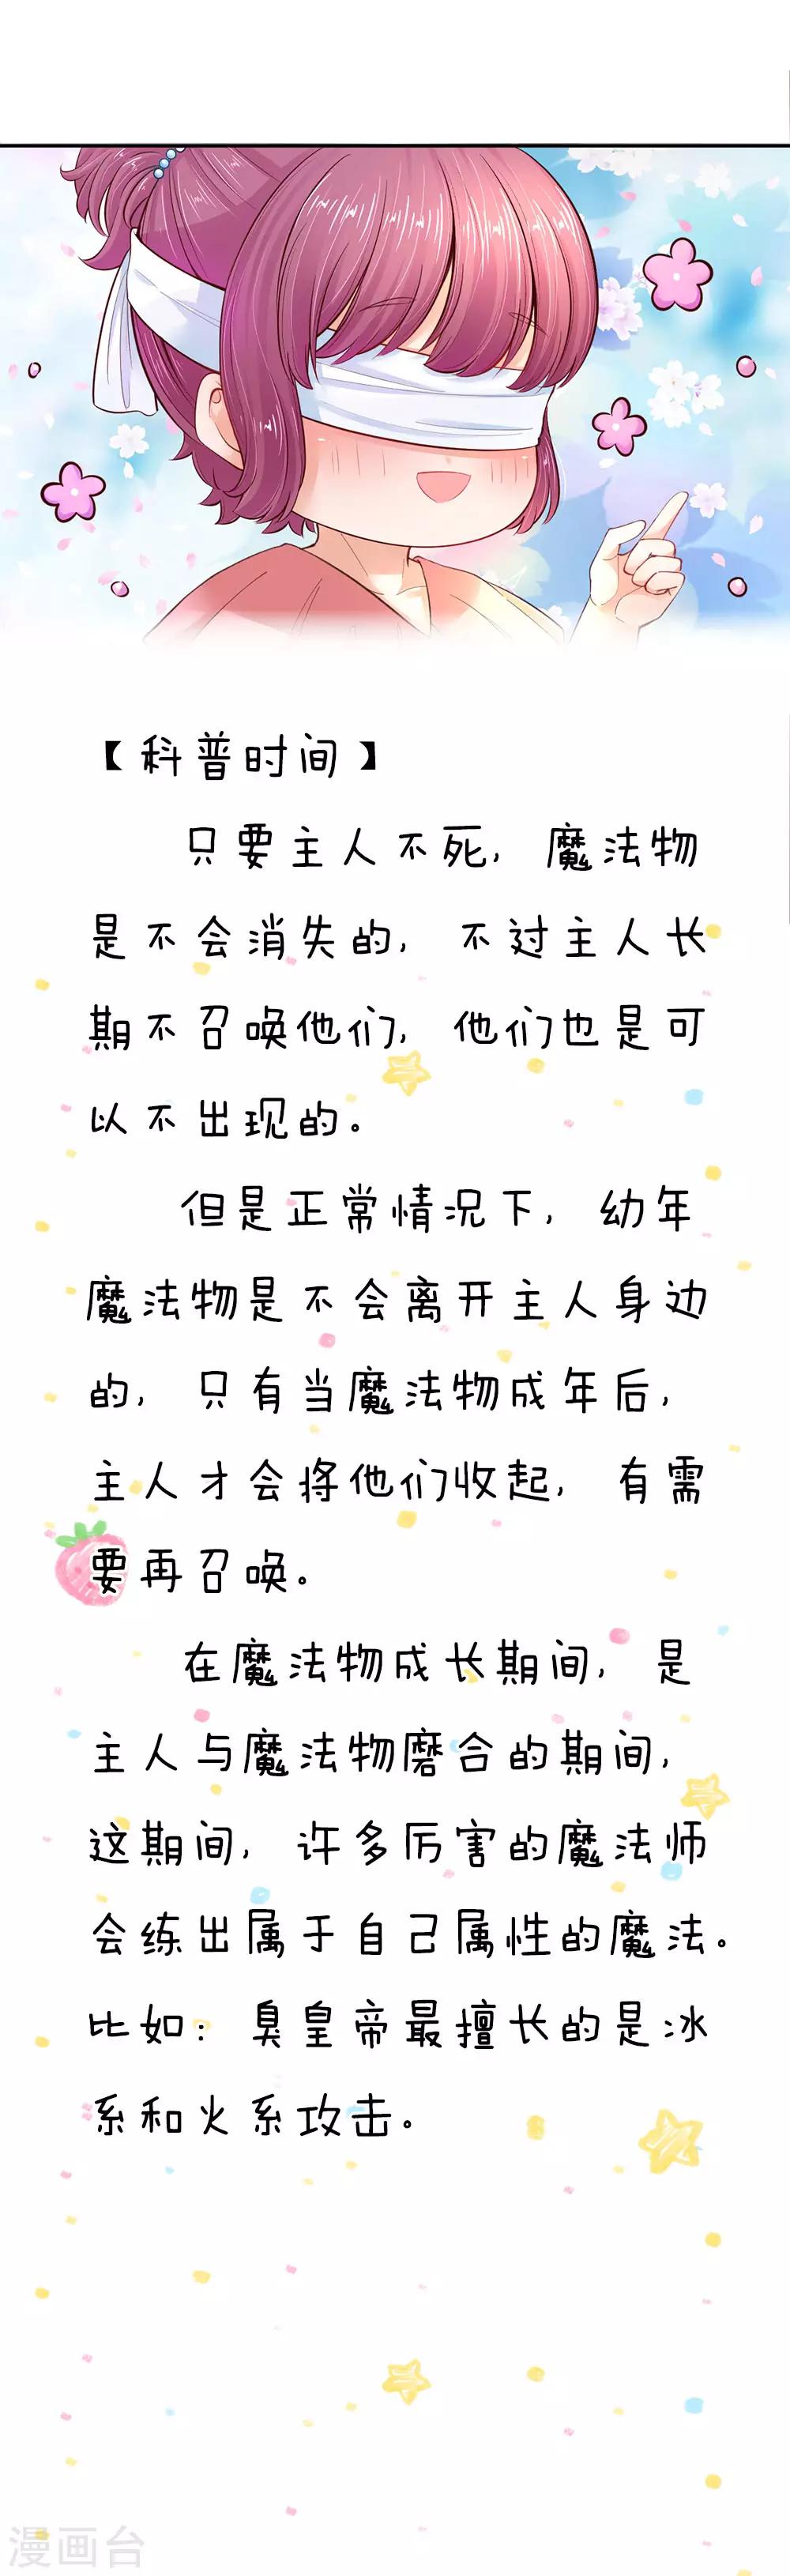 【科普时间】
只要主人不死，魔法物
是不会消失的，不过主人长
期不召唤他们，他们也是可
以不出现的。
但是正常情况下，幼年
魔法物是不会离开主人身边
的，只有当魔法物成年后，
主人才会将他们收起，有需
要再召唤。
在魔法物成长期间，是
主人与魔法物磨合的期间，
这期间，许多厉害的魔法师
会练出属于自己属性的魔法。
比如：臭皇帝最擅长的是冰
系和火系攻击。
漫画台